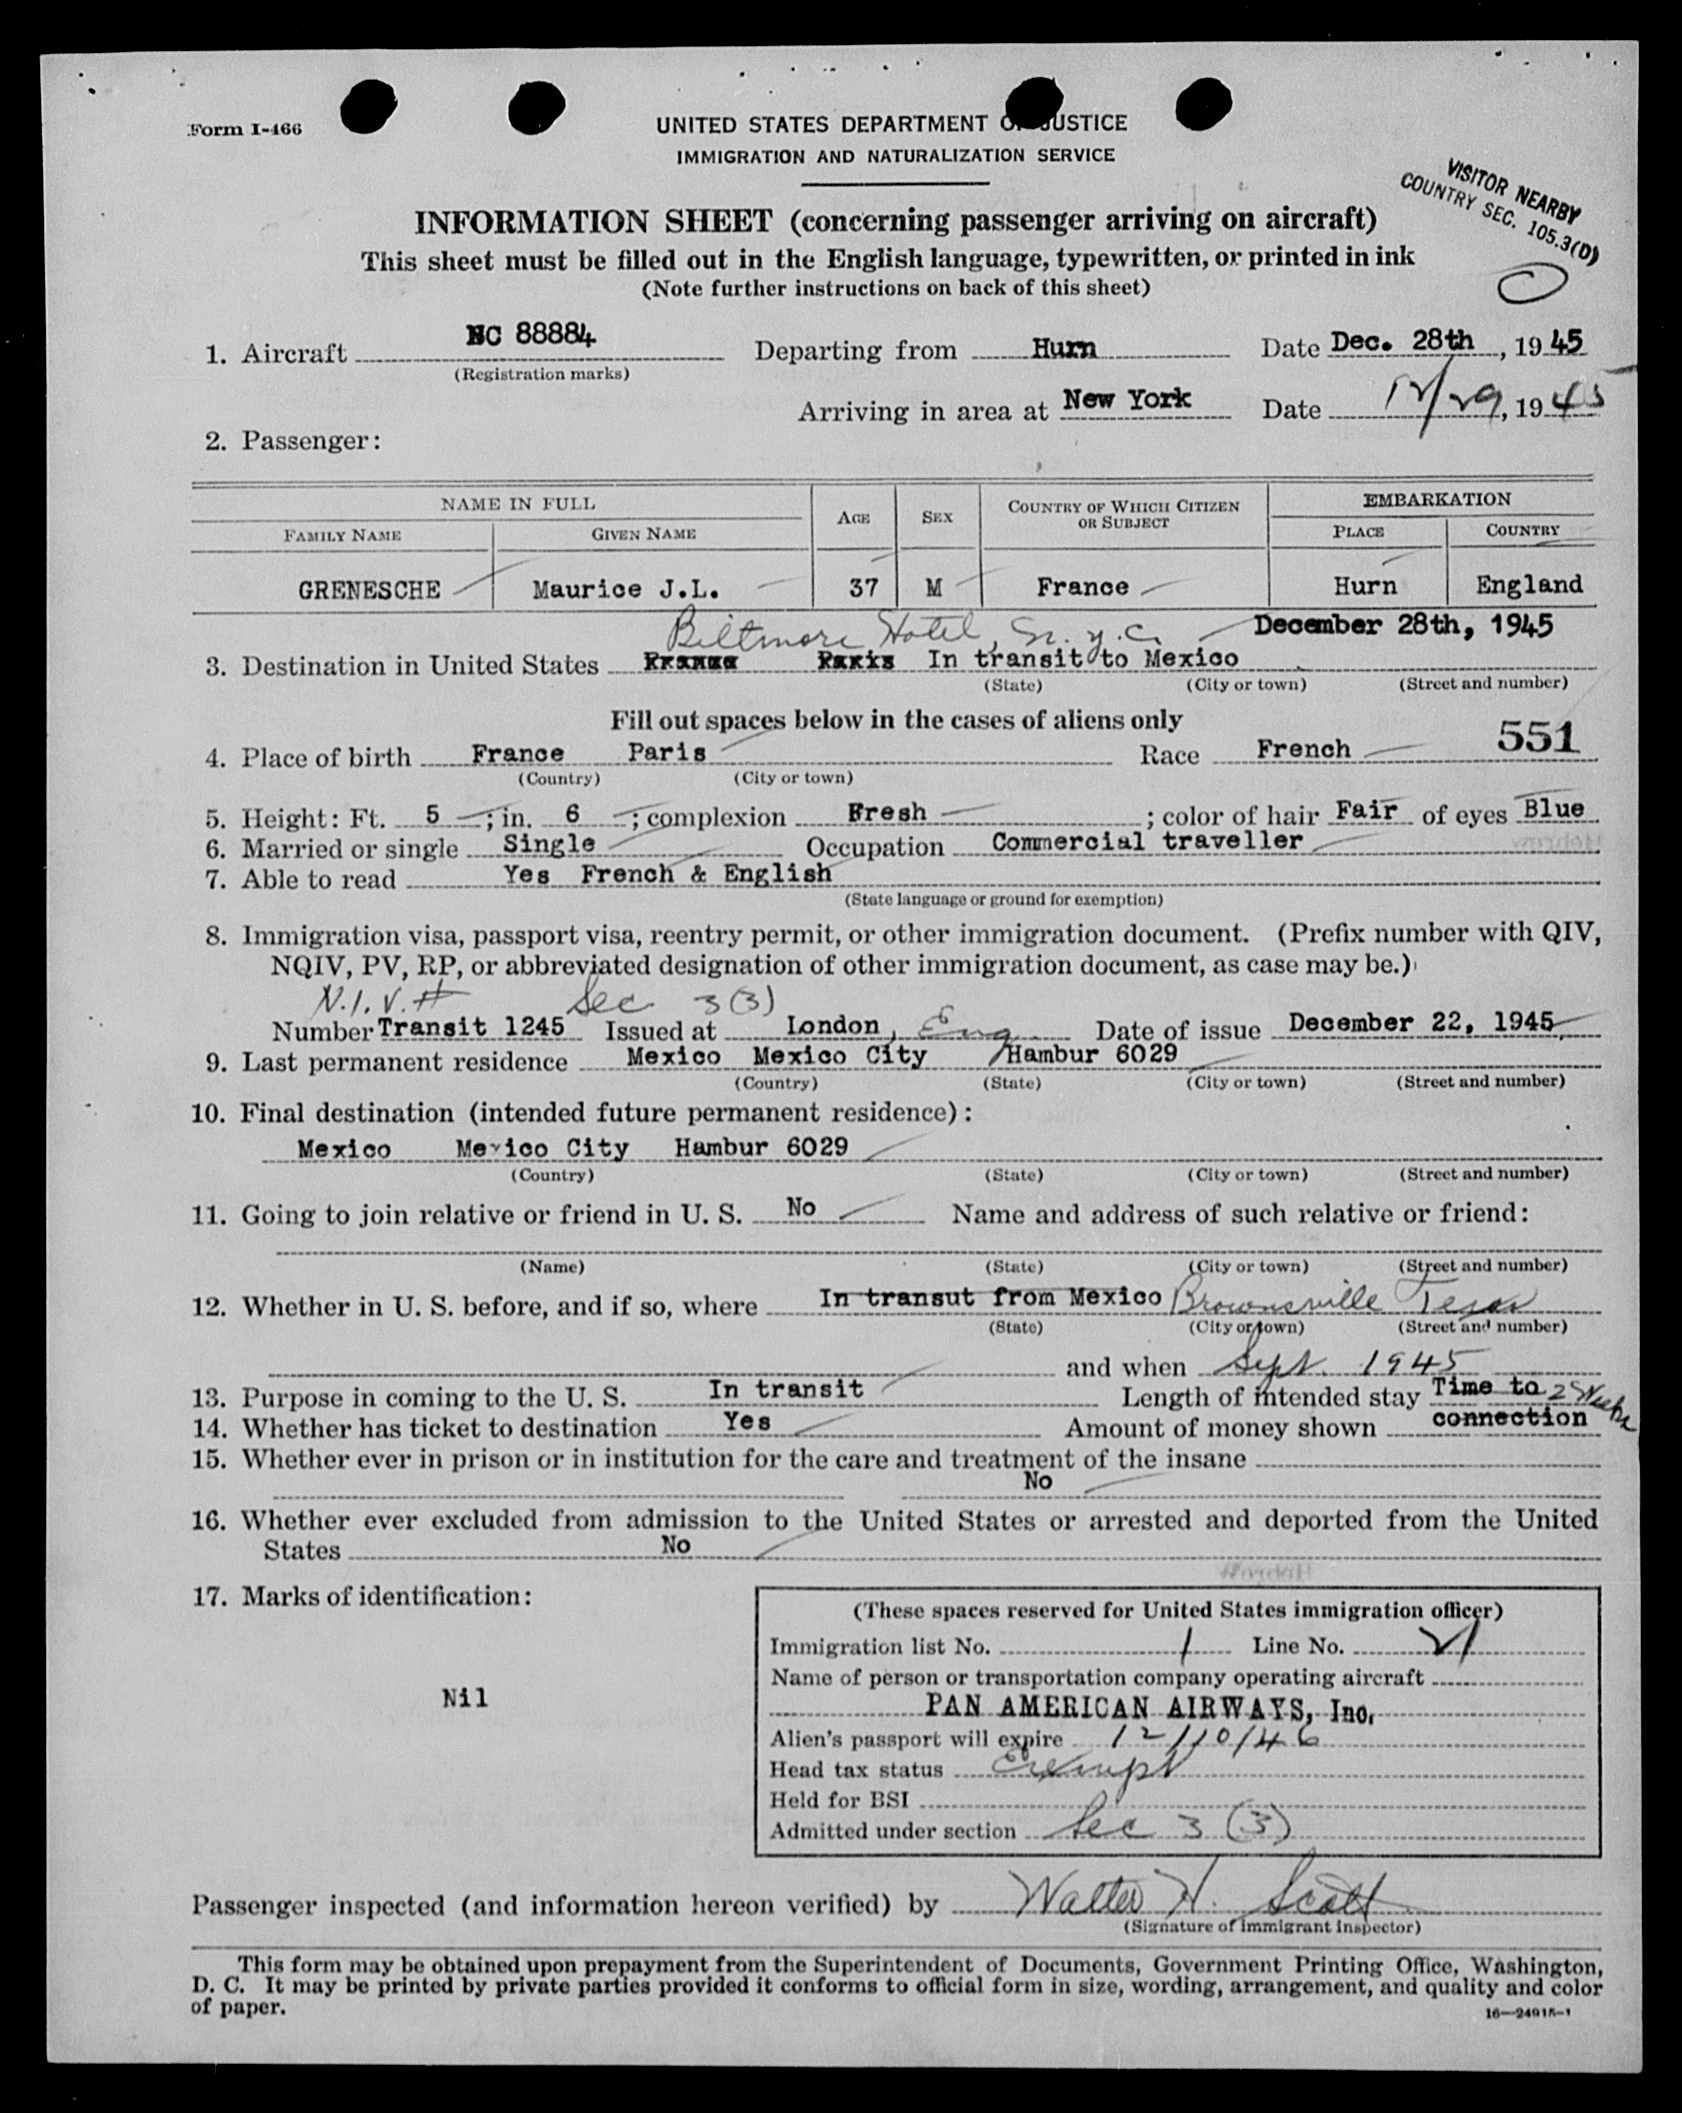 Form I-466
UNITED STATES DEPARTMENT OF JUSTICE
IMMIGRATION AND NATURALIZATION SERVICE
VISITOR NEARBY
COUNTRY SEC. 105.3(D)
INFORMATION SHEET (concerning passenger arriving on aircraft)
This sheet must be filled out in the English language, typewritten, or printed in ink
(Note further instructions on back of this sheet)
1. Aircraft NC 88884 Departing from Hurn Date Dec. 28th, 1945
(Registration marks)
Arriving in area at New York Date 12/29, 1945
2. Passenger:
NAME IN FULL AGE SEX COUNTRY OF WHICH CITIZEN OR SUBJECT EMBARKATION
FAMILY NAME GIVEN NAME PLACE COUNTRY
GRENESCHE Maurice J.L. 37 M France Hurn England
Biltmore Hotel, N.Y.C. December 28th, 1945
3. Destination in United States France Paris In transit to Mexico
(State) (City or town) (Street and number)
Fill out spaces below in the cases of aliens only
551
4. Place of birth France Paris Race French
(Country) (City or town)
5. Height: Ft. 5; in. 6; complexion Fresh; color of hair Fair of eyes Blue
6. Married or single Single Occupation Commercial traveller
7. Able to read Yes French & English
(State language or ground for exemption)
8. Immigration visa, passport visa, reentry permit, or other immigration document. (Prefix number with QIV,
NQIV, PV, RP, or abbreviated designation of other immigration document, as case may be.)
N.I.V.# Sec 3(3)
Number Transit 1245 Issued at London, Eng. Date of issue December 22, 1945
9. Last permanent residence Mexico Mexico City Hambur 6029
(Country) (State) (City or town) (Street and number)
10. Final destination (intended future permanent residence):
Mexico Mexico City Hambur 6029
(Country) (State) (City or town) (Street and number)
11. Going to join relative or friend in U. S. No Name and address of such relative or friend:
(Name) (State) (City or town) (Street and number)
12. Whether in U. S. before, and if so, where In transut from Mexico Brownsville Texas
(State) (City or town) (Street and number)
and when Sept. 1945
13. Purpose in coming to the U. S. In transit Length of intended stay Time to 2 Weeks
14. Whether has ticket to destination Yes Amount of money shown connection
15. Whether ever in prison or in institution for the care and treatment of the insane
No
16. Whether ever excluded from admission to the United States or arrested and deported from the United
States No
17. Marks of identification:
Nil
(These spaces reserved for United States immigration officer)
Immigration list No. 1 Line No. 21
Name of person or transportation company operating aircraft
PAN AMERICAN AIRWAYS, Inc.
Alien's passport will expire 12/10/46
Head tax status Exempt
Held for BSI
Admitted under section Sec 3 (3)
Passenger inspected (and information hereon verified) by Walter H. Scott
(Signature of immigrant inspector)
This form may be obtained upon prepayment from the Superintendent of Documents, Government Printing Office, Washington,
D. C. It may be printed by private parties provided it conforms to official form in size, wording, arrangement, and quality and color
of paper.
16—24915-1